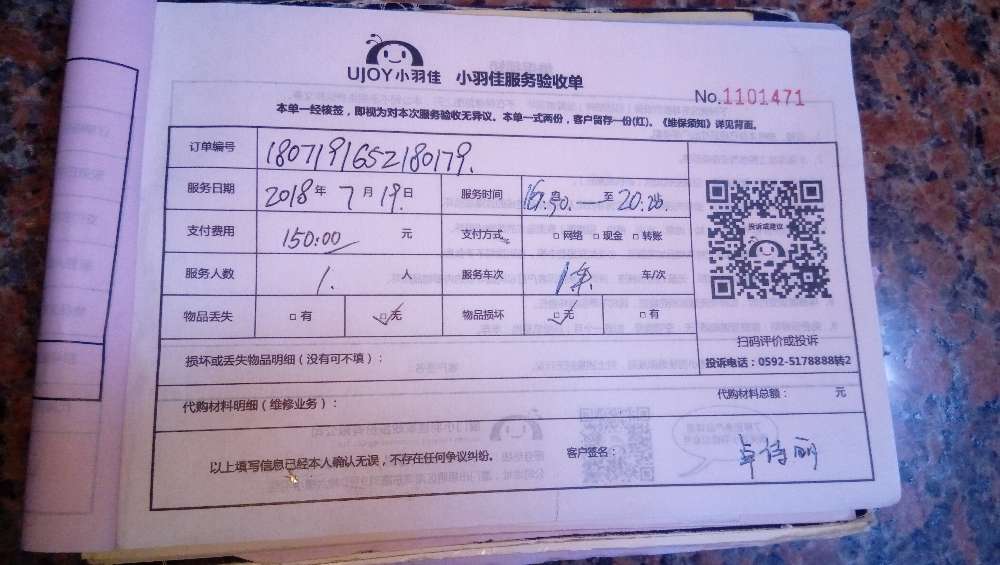 UJOY小羽佳 小羽佳服务验收单
No.1101471
本单一经核签，即视为对本次服务验收无异议。本单一式两份，客户留存一份(红)。《维保须知》详见背面。
订单编号 1807191652180179.
服务日期 2018年 7月19.日 服务时间 至 20:26
支付费用 150:00 元 支付方式 □网络 □现金 □转账
服务人数 1. 人 服务车次 车/次
物品丢失 □有 □无 物品损坏 □无 □有
投诉或建议
扫码评价或投诉
投诉电话：0592-5178888转2
损坏或丢失物品明细（没有可不填）：
代购材料明细（维修业务）： 代购材料总额： 元
以上填写信息已经本人确认无误，不存在任何争议纠纷。 客户签名： 卓诗丽